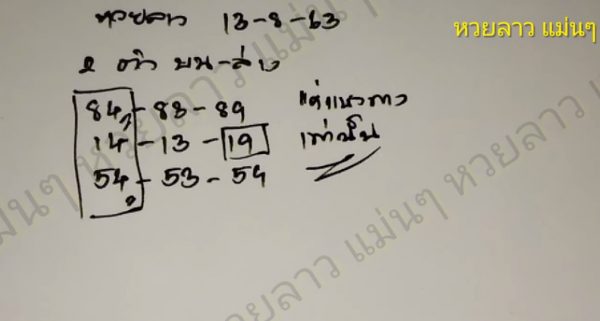 หวยลาว 13-8-63
หวยลาว แม่นๆ
2 ตัว บน-ล่าง
84-83-89
14-13-19
54-53-59
แค่แนวทาง
เท่านั้น
หวยลาว แม่นๆ
หวยลาว แม่นๆ
หวยลาว แม่นๆ